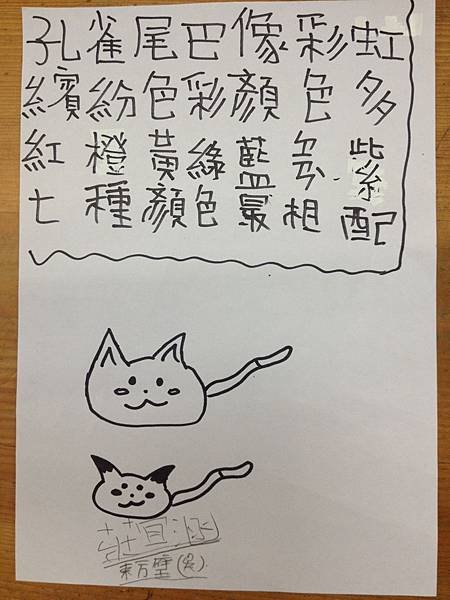 孔雀尾巴像彩虹
繽紛色彩顏色多
紅橙黃綠藍紫
七種顏色最相配